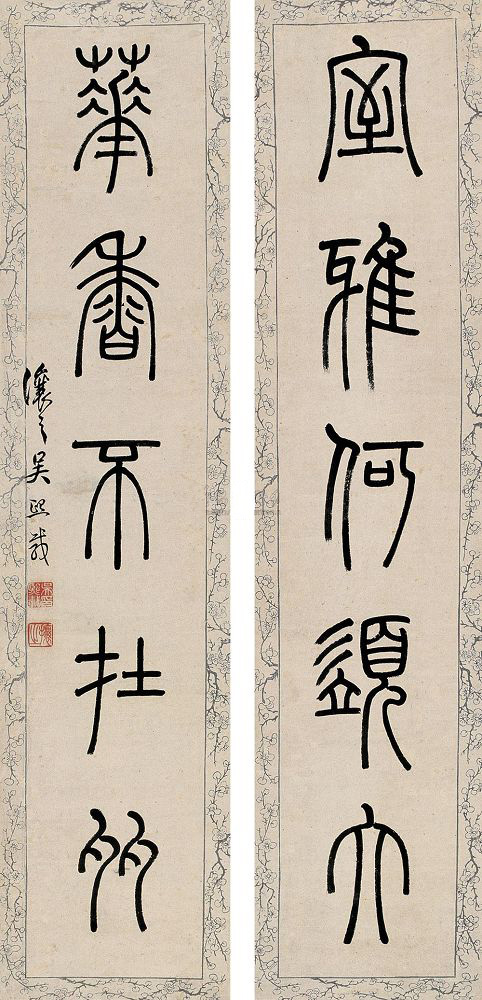 室雅何須大
華香不在多
讓之吳熙載